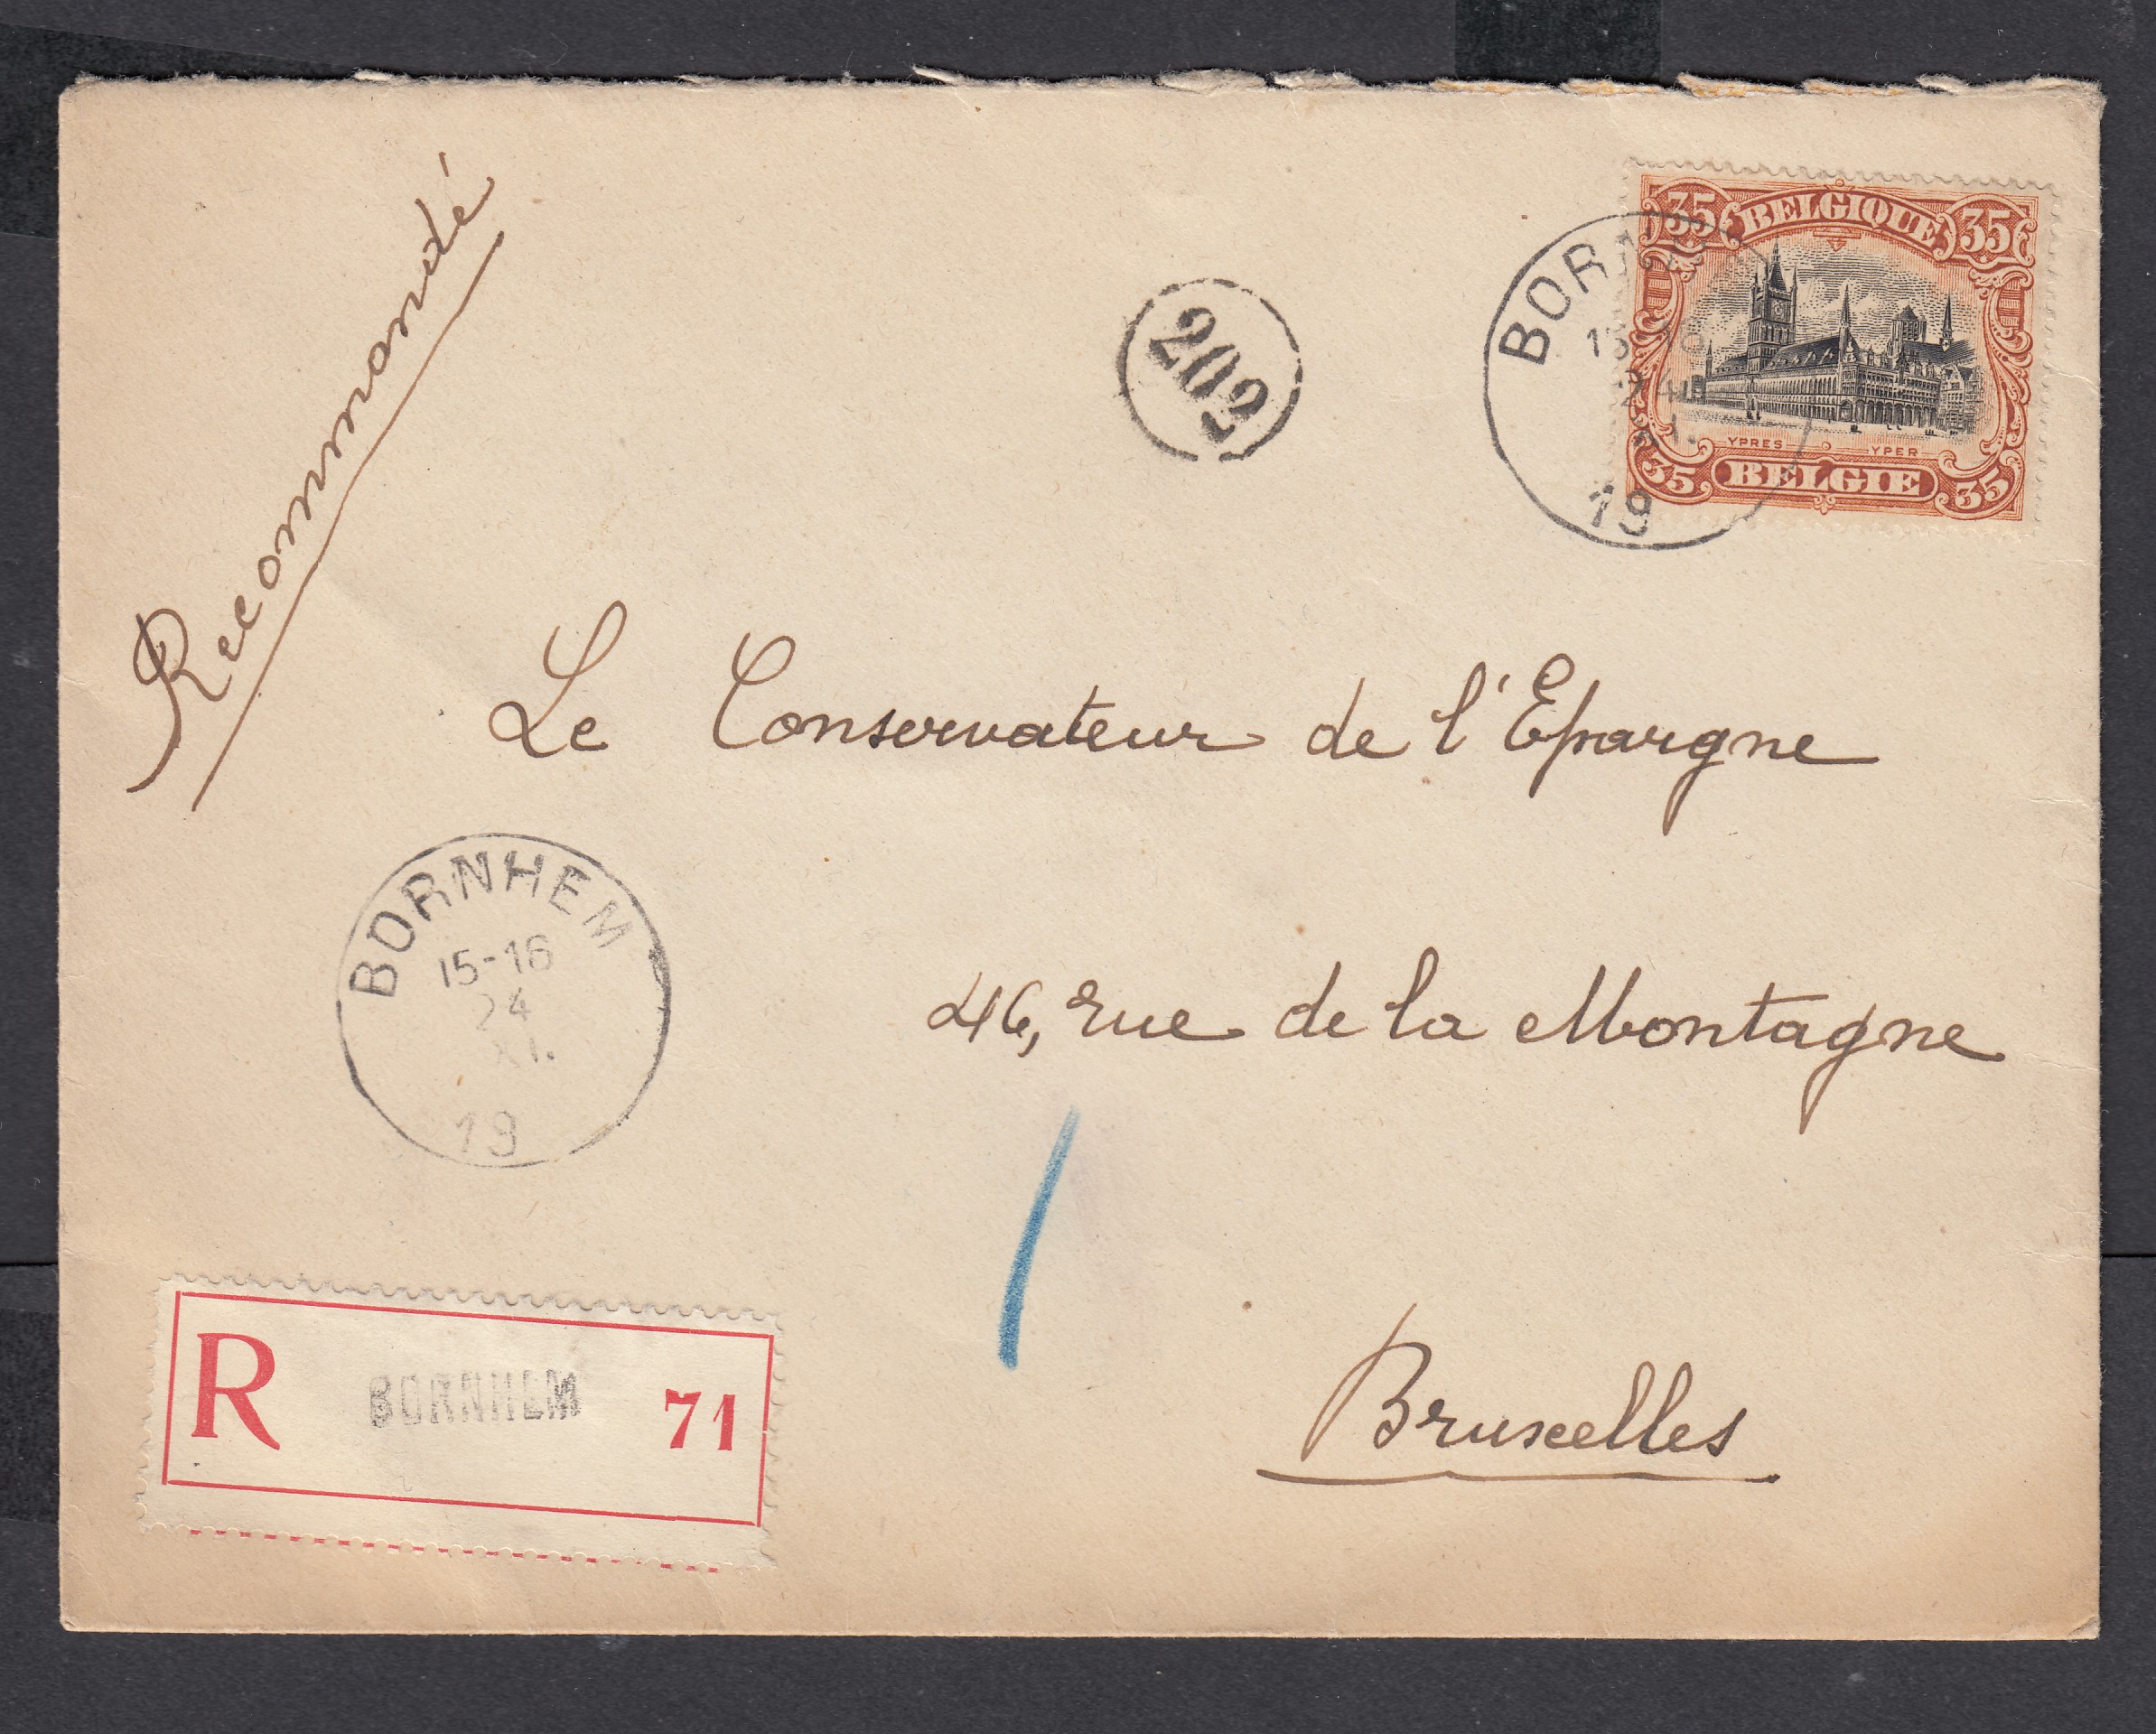 Recommandé
202
35 BELGIQUE 35
YPRES YPER
35 BELGIE 35
19
Le Conservateur de l'Epargne
BORNHEM
15-16
24
XI.
19
46, rue de la Montagne
R BORNHEM 71
Bruxelles